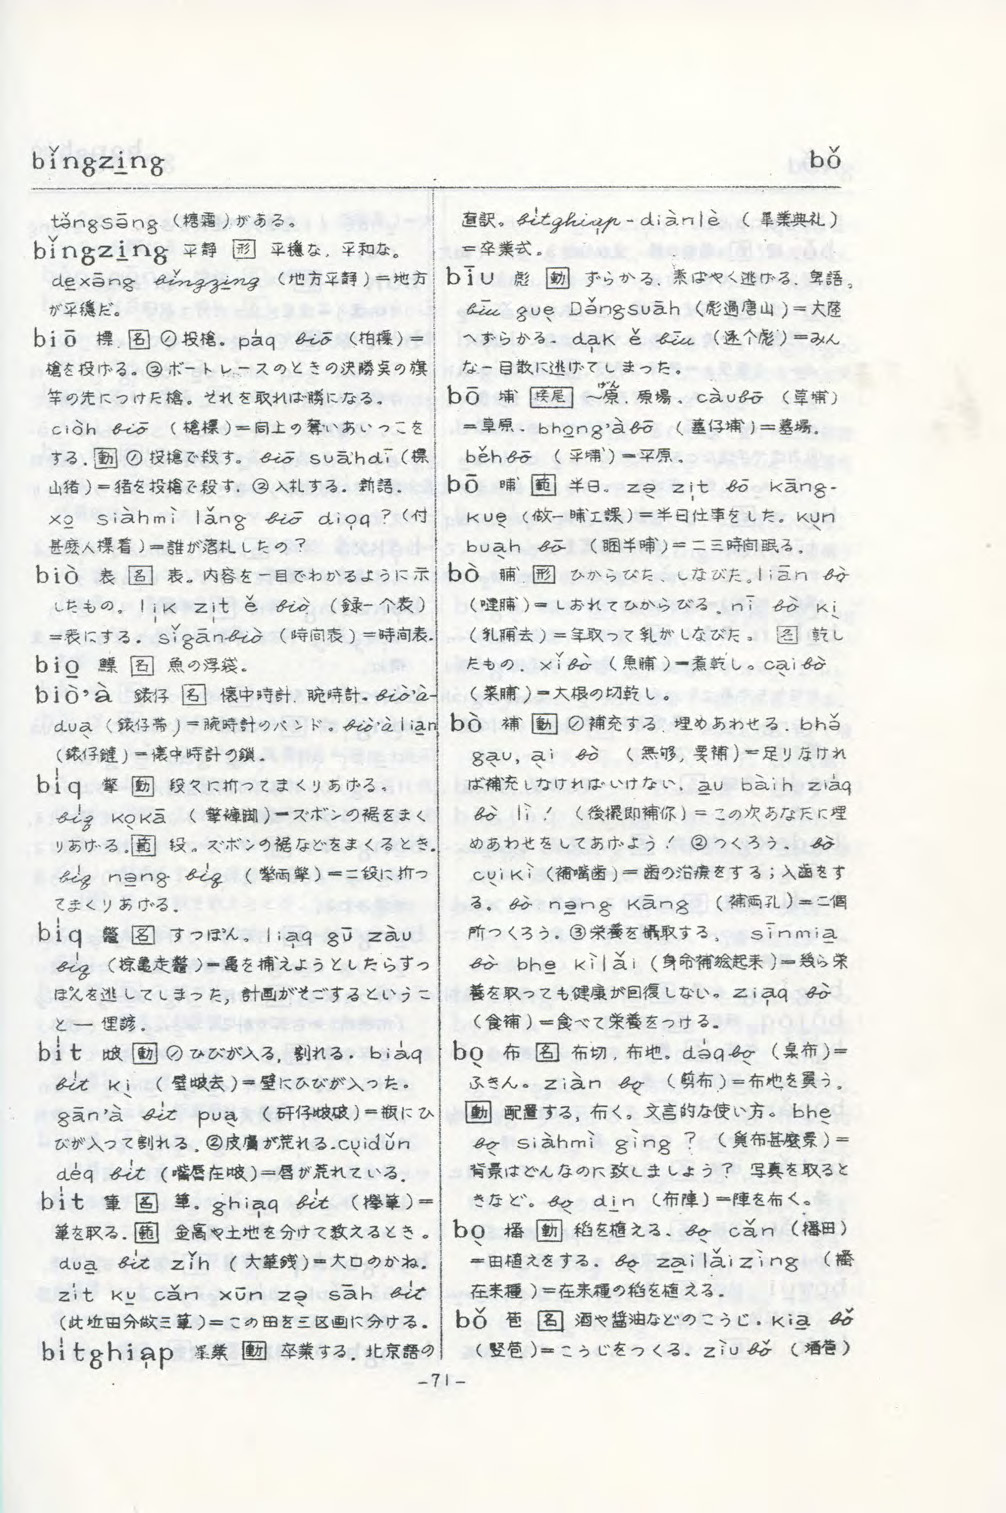 bǐngzi̠ng
bǒ
tǎngsāng (糖霜)がある。
bǐngzi̠ng 平靜 形 平穏な,平和な。
de̠xāng bǐngzi̠ng (地方平靜)=地方
が平穏だ。
biō 標 名 ①投槍。pa̍q biō (拍標)=
槍を投げる。②ボートレースのときの決勝点の旗
竿の先につけた槍。それを取れば勝になる。
ciòh biō (槍標)=同上の奪いあいっこを
する.動①投槍で殺す。biō suāhdī (標
山猪)=猪を投槍で殺す。②入札する.新語.
xo̠ siàhmì lǎng biō dio̩q ? (付
甚麽人標着)=誰が落札したの?
biò 表 名 表。内容を一目でわかるように示
したもの。li̩k zi̩t ě biò (録一个表)
=表にする. sǐgān-biò (時间表)=時間表.
bio̠ 鰾 名 魚の浮袋.
biò'à 錶仔 名 懐中時計.腕時計.biò'à-
dua̩ (錶仔帯)=腕時計のバンド。biò'à lian
(錶仔鏈)=懐中時計の鎖.
bi̍q 擎 動 段々に折ってまくりあげる.
bi̍q ko̩kā (擎褲脚)=ズボンの裾をまく
りあげる.範 段。ズボンの裾などをまくるとき.
bi̍q na̠ng bi̍q (擎両擎)=二段に折っ
てまくりあげる.
bi̍q 鼈 名 すっぽん。lia̩q gū zàu
bi̍q (掠亀走鼈)=亀を捕えようとしたらすっ
ぽんを逃してしまった,計画がそごするというこ
と― 俚諺.
bi̍t 必皮 動 ①ひびが入る,割れる. bia̍q
bi̍t ki̩ (壁去)=壁にひびが入った。
gān'à bi̍t pua̩ (矸仔破)=瓶にひ
びが入って割れる.②皮膚が荒れる.cu̩idǔn
de̍q bi̍t (嘴唇在)=唇が荒れている.
bi̍t 筆 名 筆. ghia̩q bi̍t (攑筆)=
筆を取る.範 金高や土地を分けて数えるとき。
dua̠ bi̍t zǐh (大筆銭)=大口のかね.
zi̍t ku̠ cǎn xūn zə̩ sāh bi̍t
(此坵田分做三筆)=この田を三区画に分ける.
bi̍tghia̩p 畢業 動 卒業する.北京語の
直訳。bi̍tghia̩p-diànlè (畢業典礼)
=卒業式.
bīu 彪 動 ずらかる.素ばやく逃げる.卑語。
bīu gue̩ Dǎngsuāh (彪過唐山)=大陸
へずらかる. da̩k ě bīu (逐个彪)=みん
な一目散に逃げてしまった。
bō 埔 接尾 ～原,原場. càubō (草埔)
げん
=草原. bho̠ng'àbō (墓仔埔)=墓場.
běhbō (平埔)=平原.
bō 晡 範 半日. zə̩ zi̩t bō kāng-
kue̩ (做一晡工課)=半日仕事をした。ku̩n
bua̩h bō (睏半晡)=二三時间眠る.
bò 脯 形 ひからびた、しなびた。liān bò
(脯)=しおれてひからびる。nī bò ki̩
(乳脯去)=年取って乳がしなびた。 名 乾し
たもの. xǐbò (魚脯)=煮乾し。ca̩ibò
(菜脯)=大根の切乾し.
bò 補 動 ①補充する.埋めあわせる.bhə̌
ga̩u, a̩i bò (無够,要補)=足りなけれ
ば補充しなければいけない. a̠u bàih zia̍q
bò lì ! (後擺即補你)=この次あなたに埋
めあわせをしてあげよう! ②つくろう. bò
cu̩ikì (補嘴歯)=歯の治療をする;入歯をす
る. bò na̠ng kāng (補両孔)=二個
所つくろう.③栄養を摂取する. sīnmia̠
bò bhe kìlǎi (身命補起来)=幾ら栄
養を取っても健康が回復しない. zia̩q bò
(食補)=食べて栄養をつける.
bo̩ 布 名 布切,布地. dəqbo̩ (桌布)=
ふきん。ziàn bo̩ (剪布)=布地を買う.
動 配置する,布く。文言的な使い方。bhe
bo̩ siàhmì gìng ? (布甚麼景)=
背景はどんなのに致しましょう? 写真を取ると
きなど。bo̩ di̠n (布陣)=陣を布く。
bo̩ 播 動 稻を植える. bo̩ cǎn (播田)
=田植えをする. bo̩ za̠ilǎizìng (播
在来種)=在来種の稻を植える.
bǒ 名 酒や醤油などのこうじ. kia̠ bǒ
(竪)=こうじをつくる. zìu bǒ (酒)
-71-